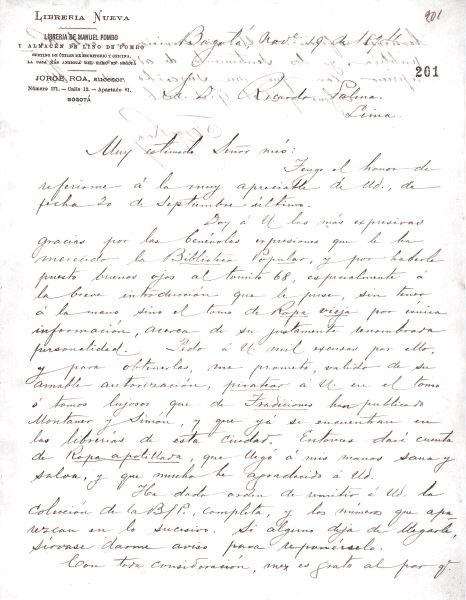 201
LIBRERIA NUEVA
LIBRERIA DE MANUEL POMBO
Y ALMACÉN DE LINO DE POMBO
SURTIDO DE ÚTILES DE ESCRITORIO Y OFICINA
LA CASA MÁS ANTIGUA DEL RAMO EN BOGOTÁ
JORGE ROA, sucesor.
Número 171.—Calle 12.—Apartado 91.
BOGOTÁ
Bogotá, Nov.e 19 de 1894
201
Sr. D. Ricardo Palma.
Lima.
Muy estimado Señor mío:
Tengo el honor de
referirme á la muy apreciable de Ud., de
fecha 20 de Septiembre último.
Doy á U las más expresivas
gracias por las benévolas expresiones que le ha
merecido la Biblioteca Popular, y por haberle
puesto buenos ojos al tomito 68, especialmente á
la breve introducción que le puse, sin tener
á la mano sino el tomo de Ropa vieja por única
información, acerca de su justamente renombrada
personalidad. Pido á U mil excusas por ello,
y para obtenerlas, me prometo, valido de su
amable autorización, piratear á U en el tomo
ó tomos lujosos que de Tradiciones han publicado
Montaner y Simón, y que ya se encuentran en
las librerías de esta Ciudad. Entonces daré cuenta
de Ropa apolillada, que llegó á mis manos sana y
salva, y que mucho he agradecido á Ud.
He dado orden de remitir á Ud. la
Colección de la B/P. completa, y los números que apa
rezcan en lo sucesivo. Si alguno deja de llegarle,
sírvase darme aviso para reponérselo.
Con toda consideración, me es grato al par q.